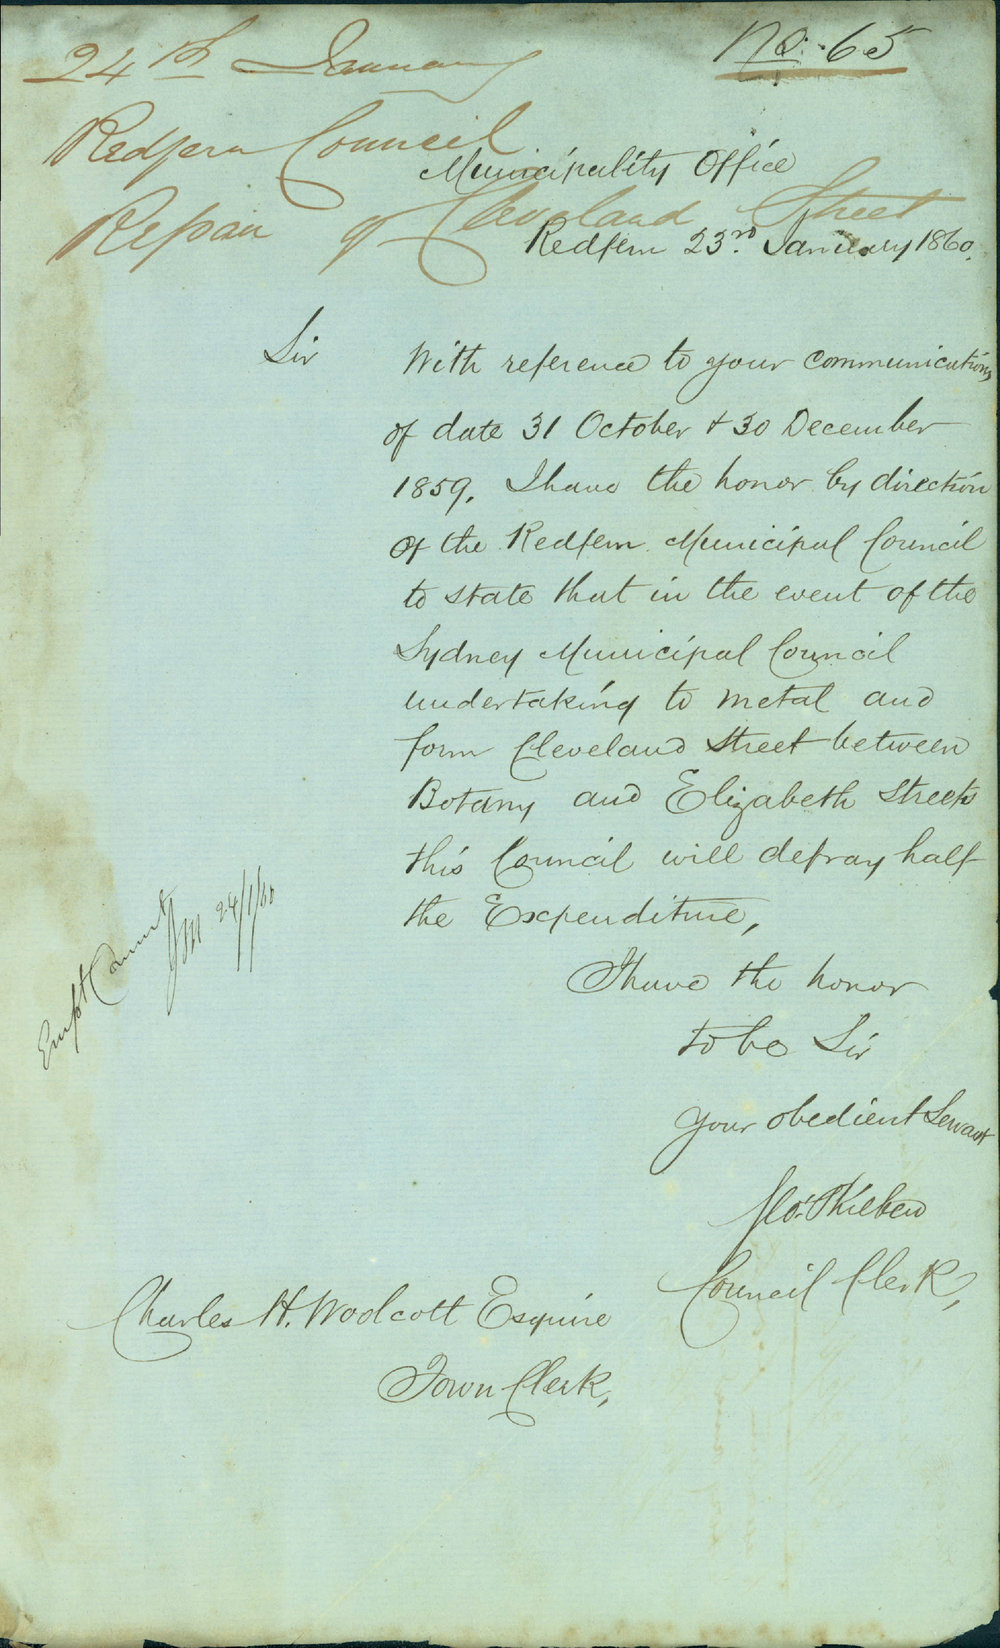 No. 65
24th January
Redfern Council
Repair of Cleveland Street
Municipality Office
Redfern 23rd January 1860.
Sir
With reference to your communications
of date 31 October & 30 December
1859, I have the honor by direction
of the Redfern Municipal Council
to state that in the event of the
Sydney Municipal Council
undertaking to metal and
form Cleveland Street between
Botany and Elizabeth Streets
this Council will defray half
the Expenditure,
I have the honor
to be Sir
your obedient Servant
Council Clerk,
Charles H. Woolcott Esquire
Town Clerk,
24/1/60